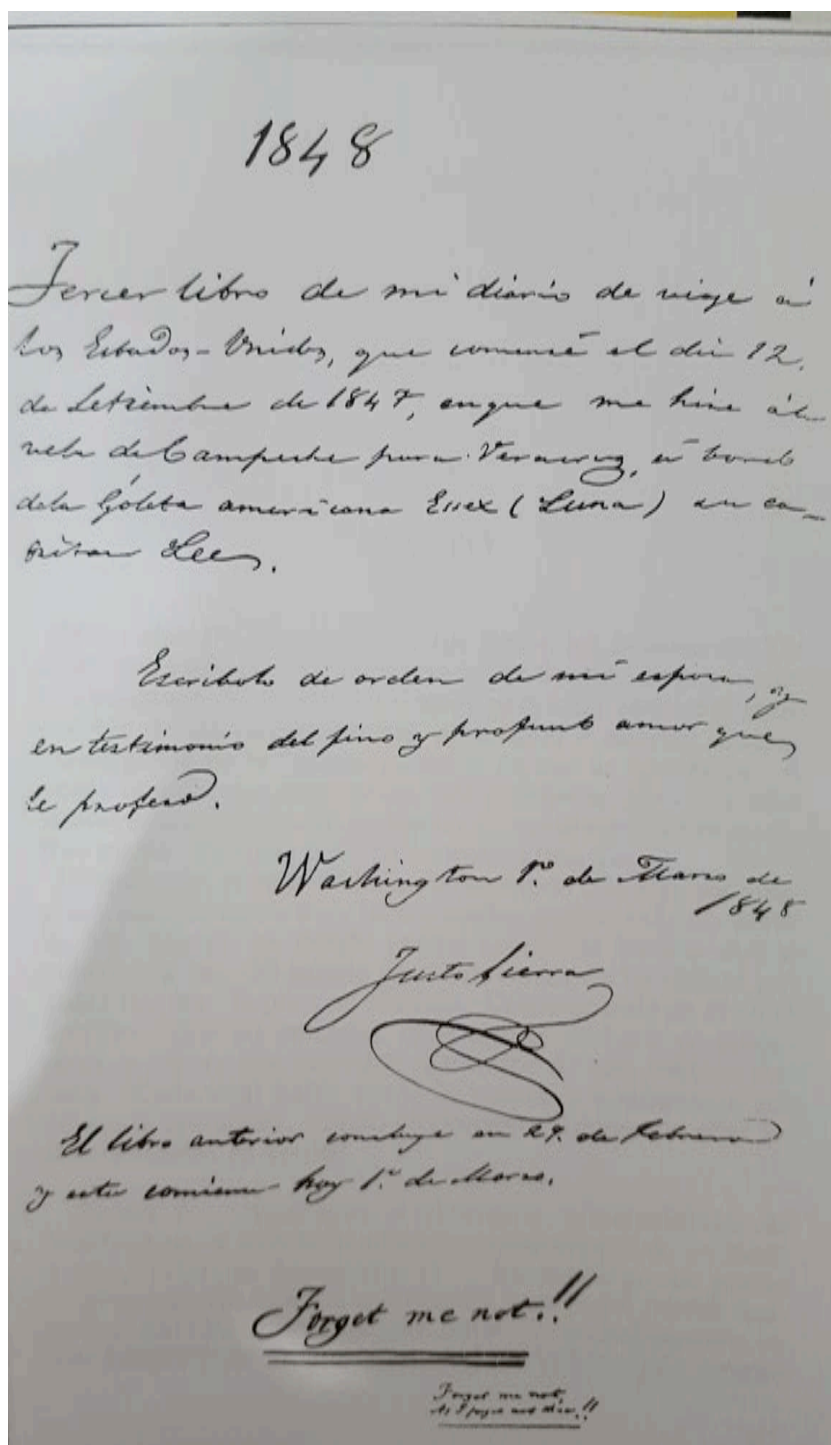 1848
Tercer libro de mi diario de viage á
los Estados-Unidos, que comencé el dia 12.
de Setiembre de 1847, en que me hice á la
vela de Campeche para Veracruz, á bordo
dela Goleta americana Essex (Luna) su ca-
pitan Lee.
Escríbolo de orden de mi esposa, y
en testimonio del fino y profundo amor que
le profeso.
Washington 1º. de Marzo de
1848
Justo Sierra
El libro anterior concluye en 29. de Febrero
y este comienza hoy 1º. de Marzo.
Forget me not.!!
Forget me not,
As I forget not thee.!!